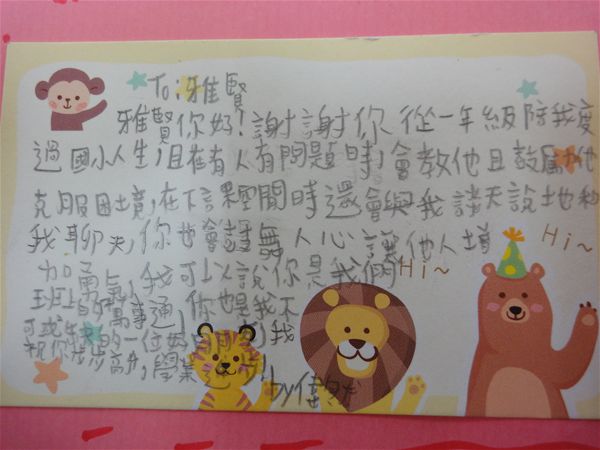 To:雅賢
雅賢你好!謝謝你從一年級陪我度
過國小人生,且在有人有問題時,會教他且鼓勵他
克服困境,在下課空閒時還會與我談天說地和
我聊天,你也會鼓舞人心讓他人增
加勇氣,我可以說你是我們
班上的萬事通,你也是我不
可或缺的一位好 我
祝你步步高升,學業
by偉
Hi~
Hi~